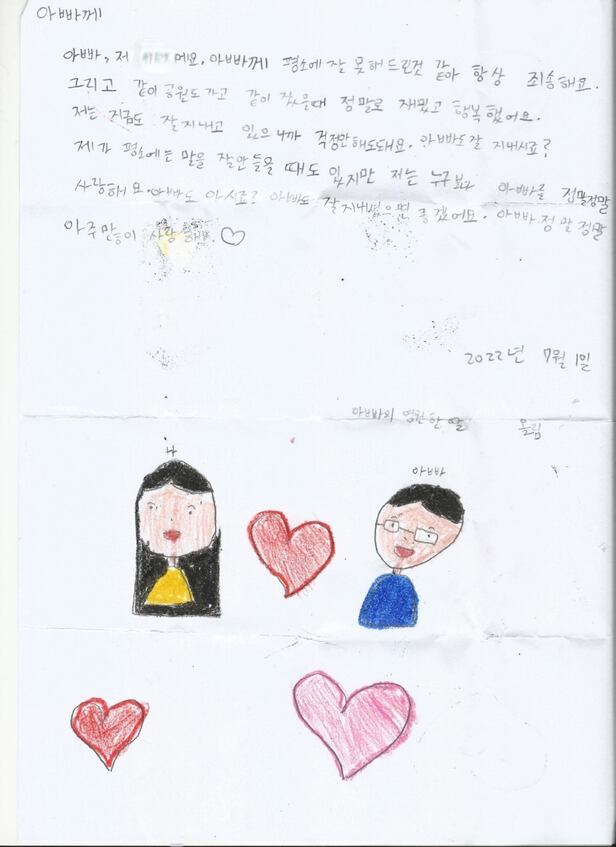 아빠께
아빠, 저 에요. 아빠께 평소에 잘 못해드린것 같아 항상 죄송해요.
그리고 같이 공원도 가고 같이 잤을때 정말로 재밌고 행복했어요.
저는 지금도 잘지내고 있으니까 걱정안해도돼요. 아빠도 잘 지내시죠?
제가 평소에는 말을 잘안들을 때도 있지만 저는 누구보다 아빠를 정말정말
사랑해요. 아빠도 아시죠? 아빠도 잘지내셨으면 좋겠어요. 아빠 정말 정말
아주만이 사랑해요. ♡
2022년 7월 1일
아빠의 영원한 딸 올림
나
아빠